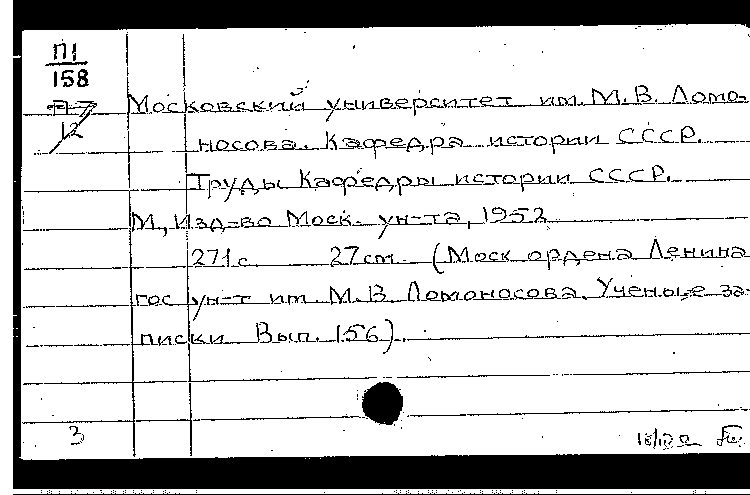 П1
158
12
Московский университет им. М.В. Ломо-
носова. Кафедра истории СССР.
Труды Кафедры истории СССР.
М., Изд-во Моск. ун-та, 1952
271с 27см. (Моск ордена Ленина
гос ун-т им. М.В. Ломоносова. Ученые за-
писки Вып. 156).
3